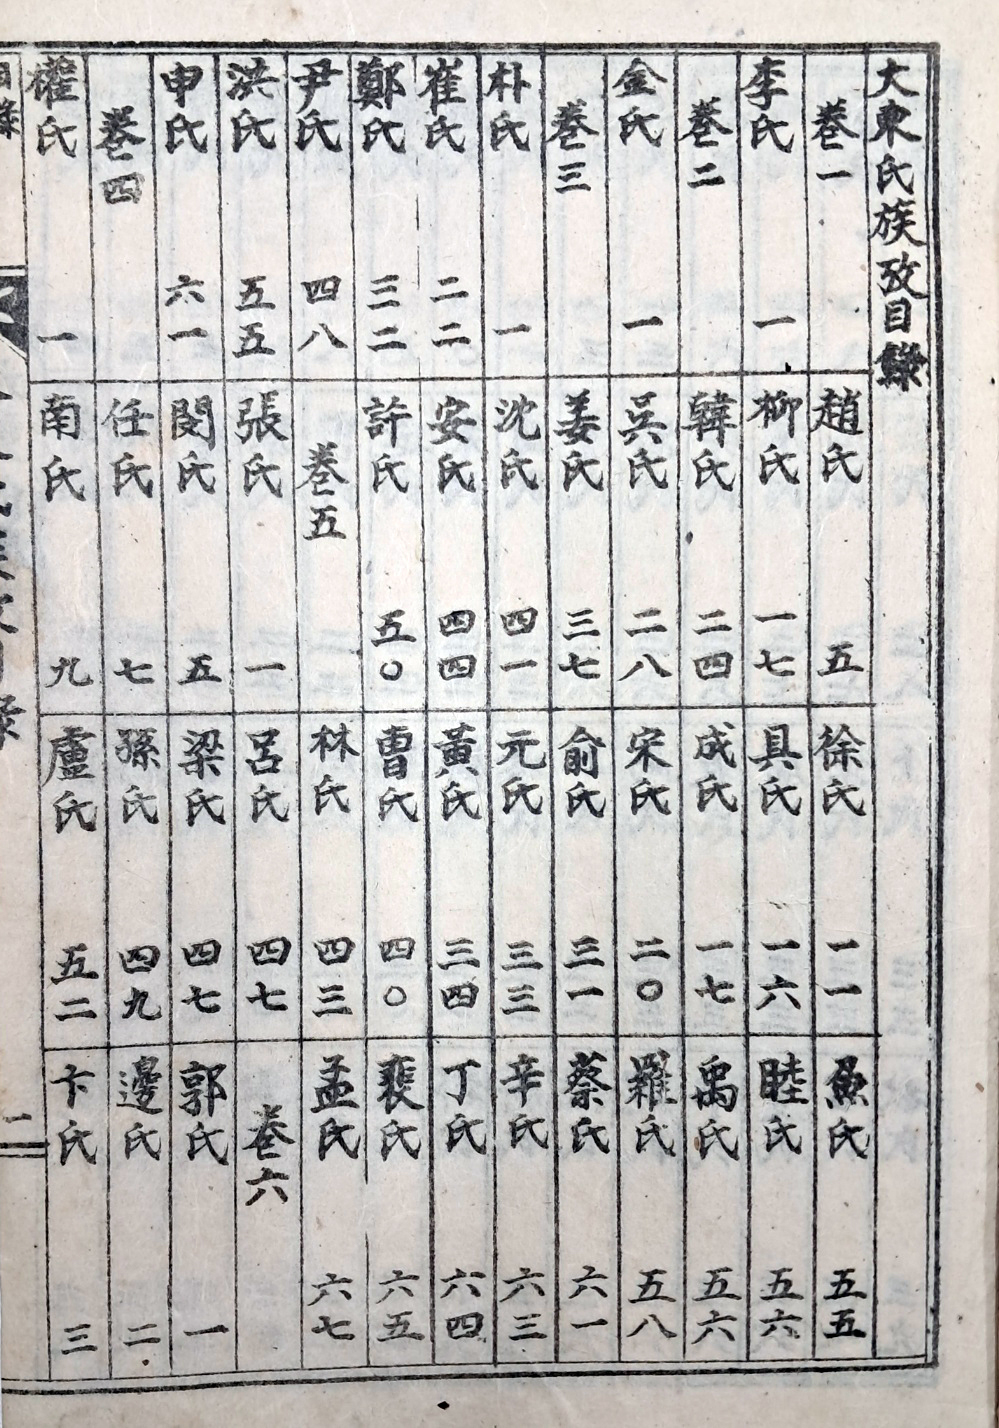 大東氏族攷目錄
卷一
李氏 一
卷二
金氏 一
卷三
朴氏 一
崔氏 二二
鄭氏 三二
尹氏 四八
洪氏 五五
申氏 六一
卷四
權氏 一
趙氏 五
柳氏 一七
韓氏 二四
吳氏 二八
姜氏 三七
沈氏 四一
安氏 四四
許氏 五〇
卷五
張氏 一
閔氏 五
任氏 七
南氏 九
徐氏 一一
具氏 一六
成氏 一七
宋氏 二〇
兪氏 三一
元氏 三三
黃氏 三四
曹氏 四〇
林氏 四三
呂氏 四七
梁氏 四七
孫氏 四九
盧氏 五二
魚氏 五五
睦氏 五六
禹氏 五六
羅氏 五八
蔡氏 六一
辛氏 六三
丁氏 六四
裵氏 六五
孟氏 六七
卷六
郭氏 一
邊氏 二
卞氏 三